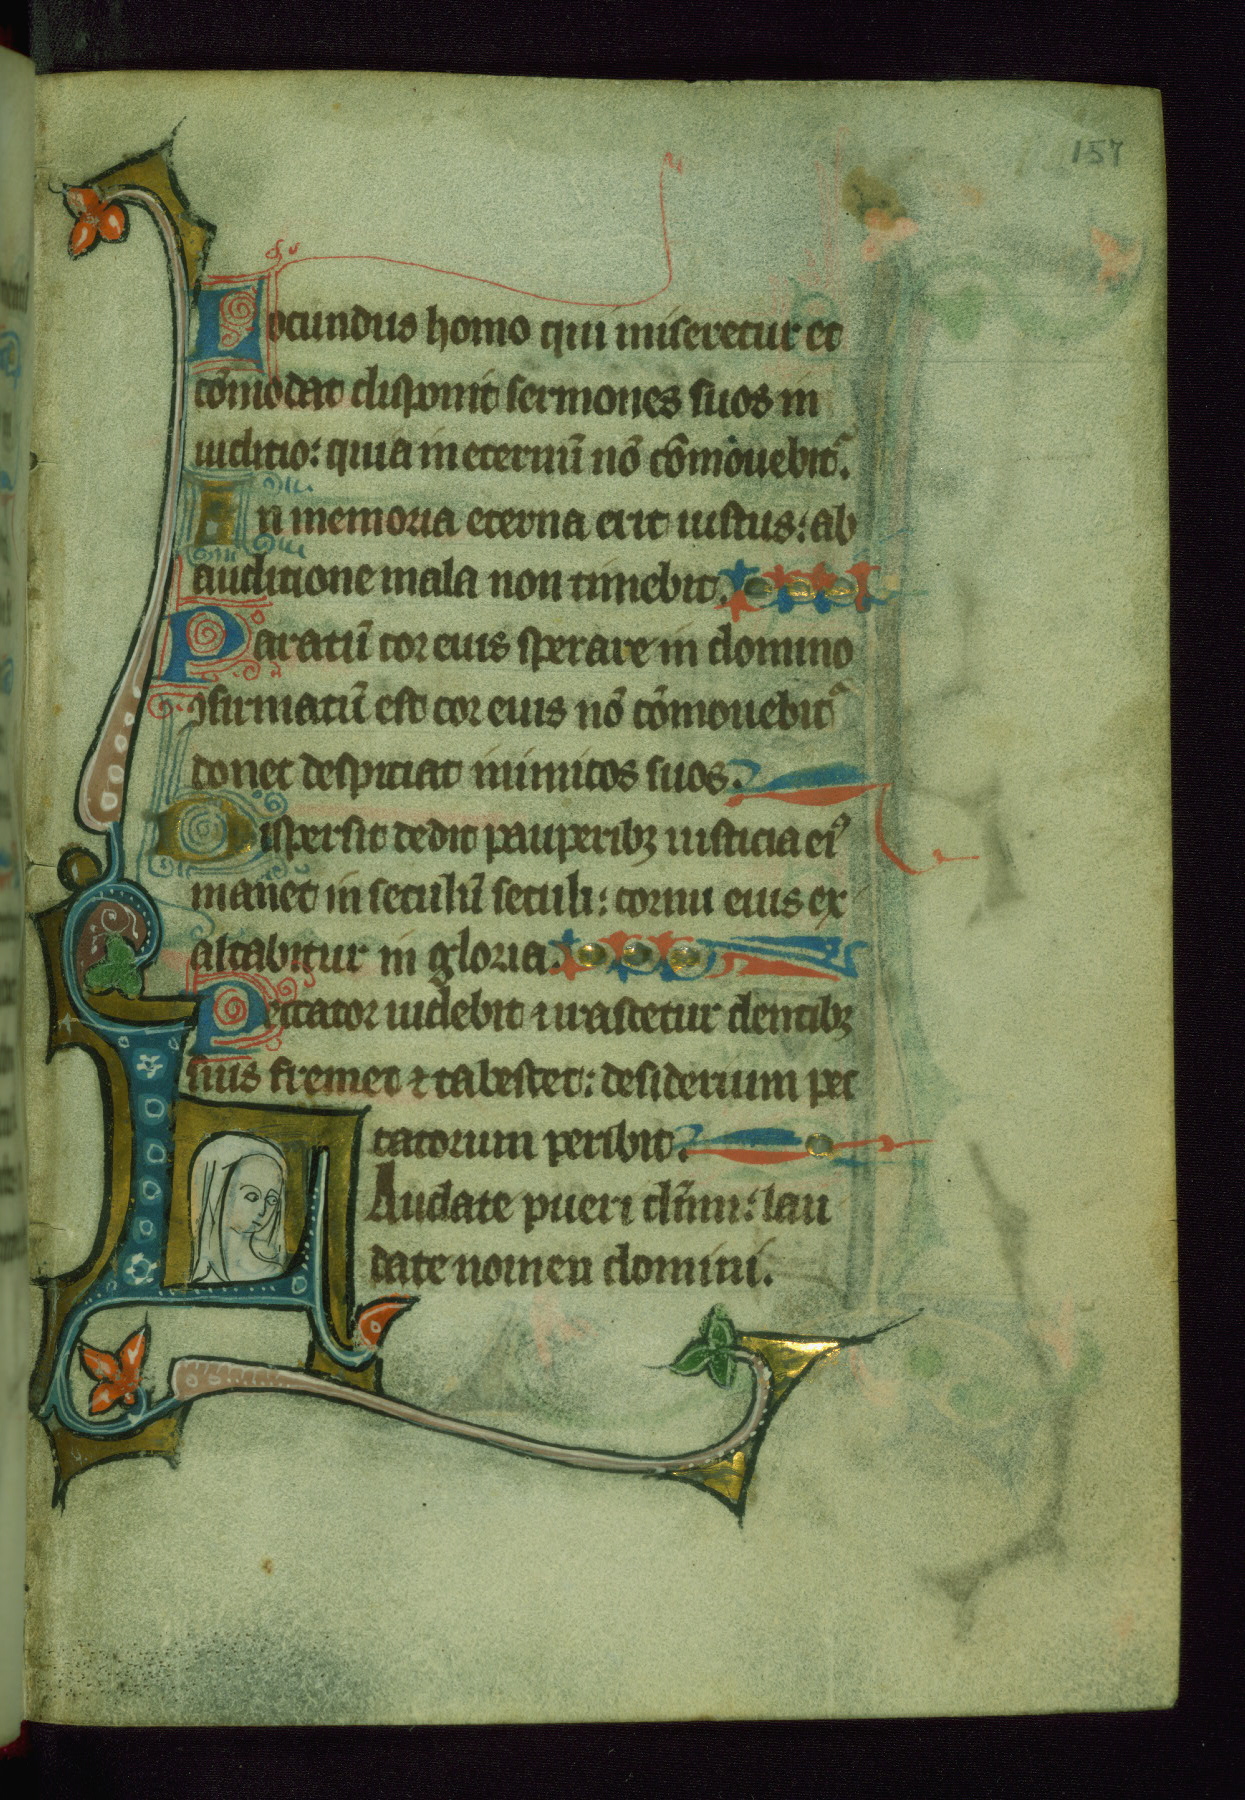 157
Iocundus homo qui miseretur et
cōmodat disponit sermones suos in
iudicio: quia in eternū nō cōmouebit᷑.
In memoria eterna erit iustus: ab
auditione mala non timebit.
Paratū cor eius sperare in domino
ꝯfirmatū est cor eius nō cōmouebit᷑
donec despiciat inimicos suos.
Dispersit dedit pauperibꝫ iusticia eiꝰ
manet in seculū seculi: cornu eius ex
altabitur in gloria.
Peccator uidebit ⁊ irascetur dentibꝫ
suis fremet ⁊ tabescet: desiderium pec
catorum peribit.
Laudate pueri dn̄m: lau
date nomen domini.